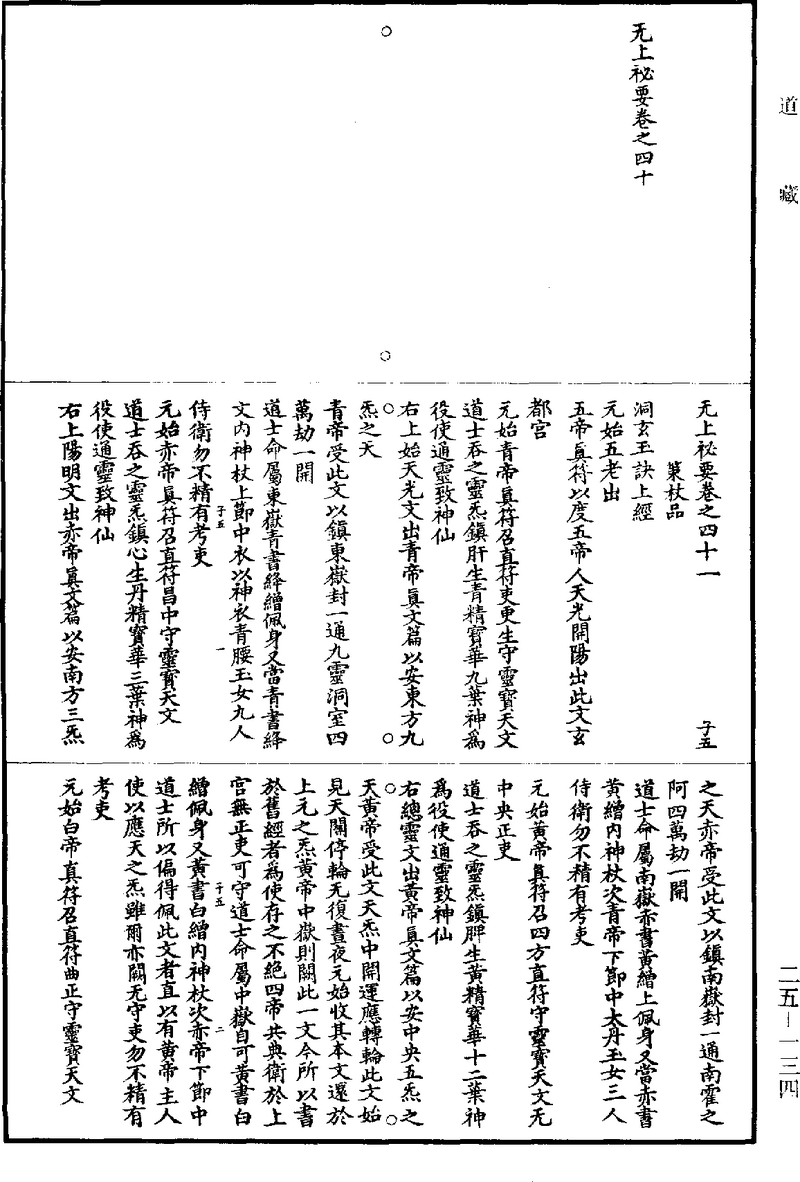 道藏
二五—一三四
无上祕要卷之四十
无上祕要卷之四十一
子五
策杖品
洞玄玉訣上經
元始五老出
五帝真符以度五帝人天光開陽出此文玄
都宮
元始青帝真符召直符吏更生守靈寶天文
道士吞之靈炁鎮肝生青精寶華九葉神爲
役使通靈致神仙
右上始天光文出青帝真文篇以安東方九
炁之天
青帝受此文以鎮東嶽封一通九靈洞室四
萬劫一開
道士命屬東嶽青書絳繒佩身又當青書絳
文内神杖上節中衣以神衣青腰玉女九人
子五
一
侍衛勿不精有考吏
元始赤帝真符召直符昌中守靈寶天文
道士吞之靈炁鎮心生丹精寶華三葉神爲
役使通靈致神仙
右上陽明文出赤帝真文篇以安南方三炁
之天赤帝受此文以鎮南嶽封一通南霍之
阿四萬劫一開
道士命屬南嶽赤書黃繒上佩身又當赤書
黃繒内神杖次青帝下節中太丹玉女三人
侍衛勿不精有考吏
元始黃帝真符召四方直符守靈寶天文无
中央正吏
道士吞之靈炁鎮脾生黃精寶華十二葉神
爲役使通靈致神仙
右總靈文出黃帝真文篇以安中央五炁之
天黃帝受此文天炁中開運應轉輪此文始
見天關停輪无復晝夜元始收其本文還於
上元之炁黃帝中嶽則闕此一文今所以書
於舊經者爲使存之不絕四帝共典衛於上
宮無正吏可守道士命屬中嶽自可黃書白
子五
二
繒佩身又黃書白繒内神杖次赤帝下節中
道士所以偏得佩此文者直以有黃帝主人
使以應天之炁雖爾亦闕无守吏勿不精有
考吏
元始白帝真符召直符曲正守靈寶天文